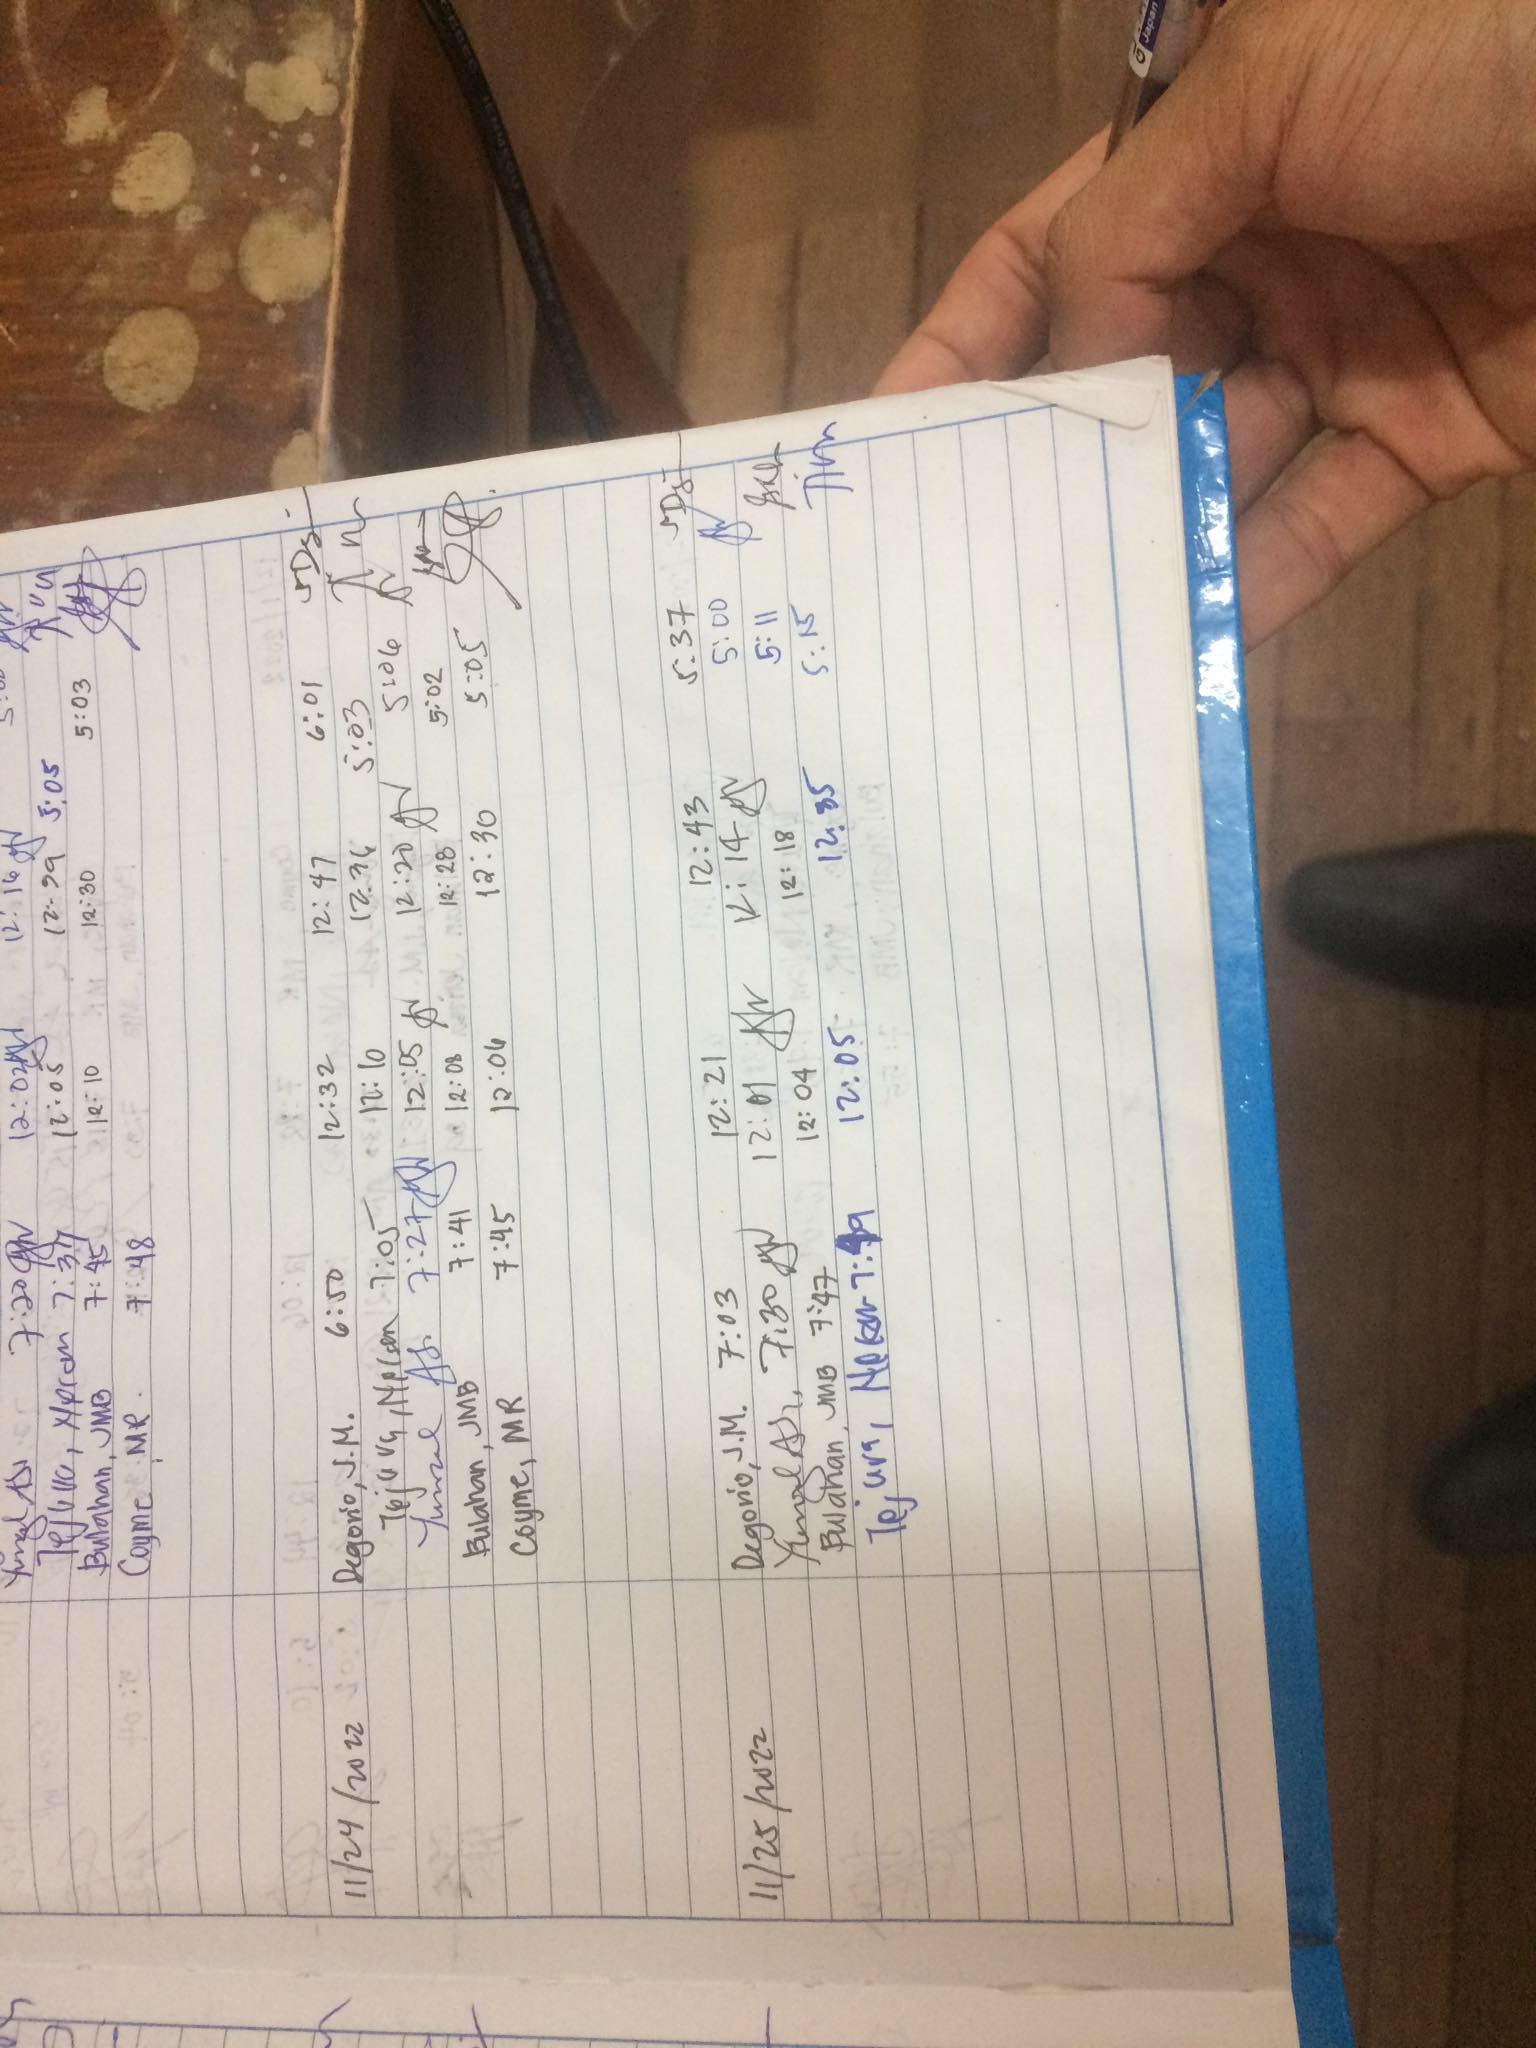 Yumul 7:20 12:02 12:16
7:37 12:05 12:29 5:05
Bulahan, JMB 7:45 12:10 12:30 5:03
Coyme, MR. 7:48
11/24/2022 Degorio, J.M. 6:50 12:32 12:47 6:01
Tejuva, Nelson 7:05 12:10 5:03
Yumul 7:27 12:05 12:20 5:06
Bulahan, JMB 7:41 12:08 12:28 5:02
Coyme, MR 7:45 12:06 12:30 5:05
11/25/2022 Degorio, J.M. 7:03 12:21 12:43 5:37
Yumul 7:30 12:01 12:14 5:00
Bulahan, JMB 7:47 12:04 12:18 5:11
Tejuva, Nelson 12:05 12:35 5:15
Japan